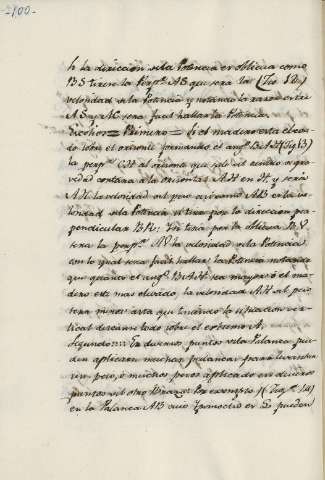 h la direccion de la Potencia es obliqua como
BS tirese la Perp.r AS que será la (Teo
velocidad de la Potencia y notando la razon entre
AS y AC sera facil hallar la Potencia
Escolios = Primero = Si el madero está elevado
sobre el orizonte formando el ang.o BAH (Fig.
la perp.r CH al orizonte que sale del centro de gravedad
cortará a la orizontal AH en H, y será
AH la velocidad del peso asi como AB es la velocidad
de la Potencia si tira por la direccion perpendicular
BK: Si tira por la obliqua BV
sera la perp.r AV la velocidad de la Potencia
con lo qual sera facil hallar la Potencia notando
que quanto el ang.o BAH sea mayor ó el madero
esté mas elevado, la velocidad AH del peso
sera menor hasta que llegando la situacion vertical
descanse todo sobre el extremo A.
Segundo En diversos puntos de la Palanca pueden
aplicarse muchas palancas para levantar
un peso, ó muchos pesos aplicados en diversos
puntos del otro Brazo: Por exemplo (Fig.
en la Palanca AB cuio Ipomoclio es E pueden